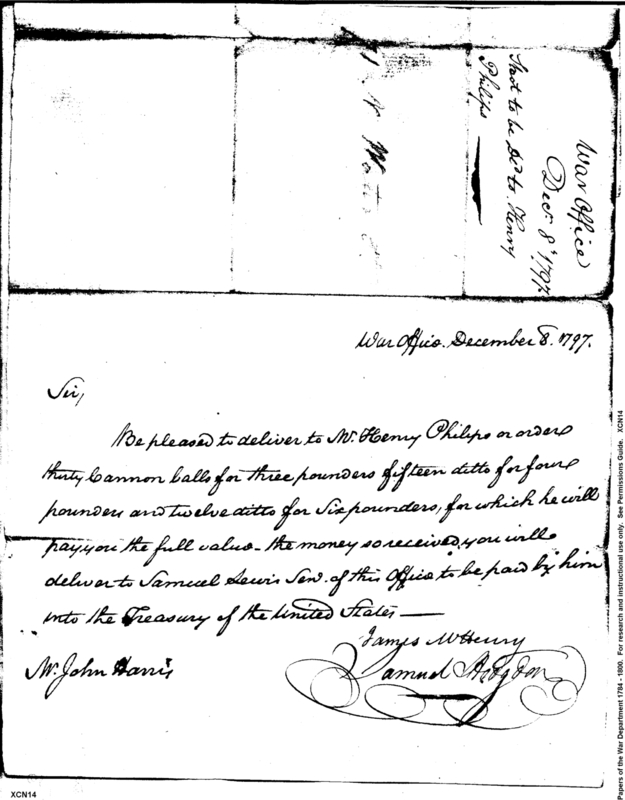 War Office
Decr. 8th 1797.
Shot to be Dd. to Henry
Philips
War Office. December 8. 1797.
Sir,
Be pleased to deliver to Mr. Henry Philips or order
thirty Cannon balls for three pounders fifteen ditto for four
pounders and twelve ditto for Six pounders, for which he will
pay you the full value - the money so received, you will
deliver to Samuel Lewis Senr. of this Office to be paid by him
into the Treasury of the United States —
James McHenry
Samuel Hodgdon
Mr. John Harris
XCN14
Papers of the War Department 1784 - 1800. For research and instructional use only. See Permissions Guide. XCN14